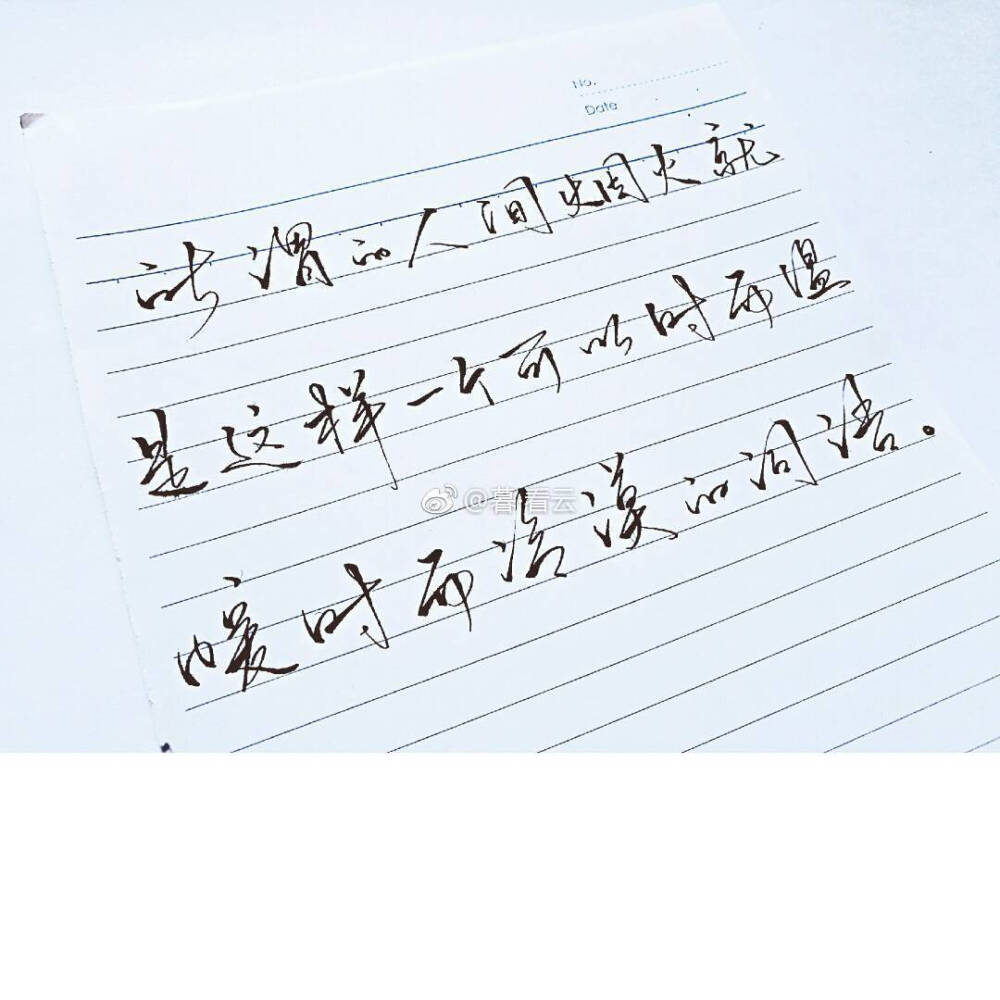 No.
Date
所谓的人间烟火就
是这样一个可以时而温
暖时而冷漠的词语。
@暮看云